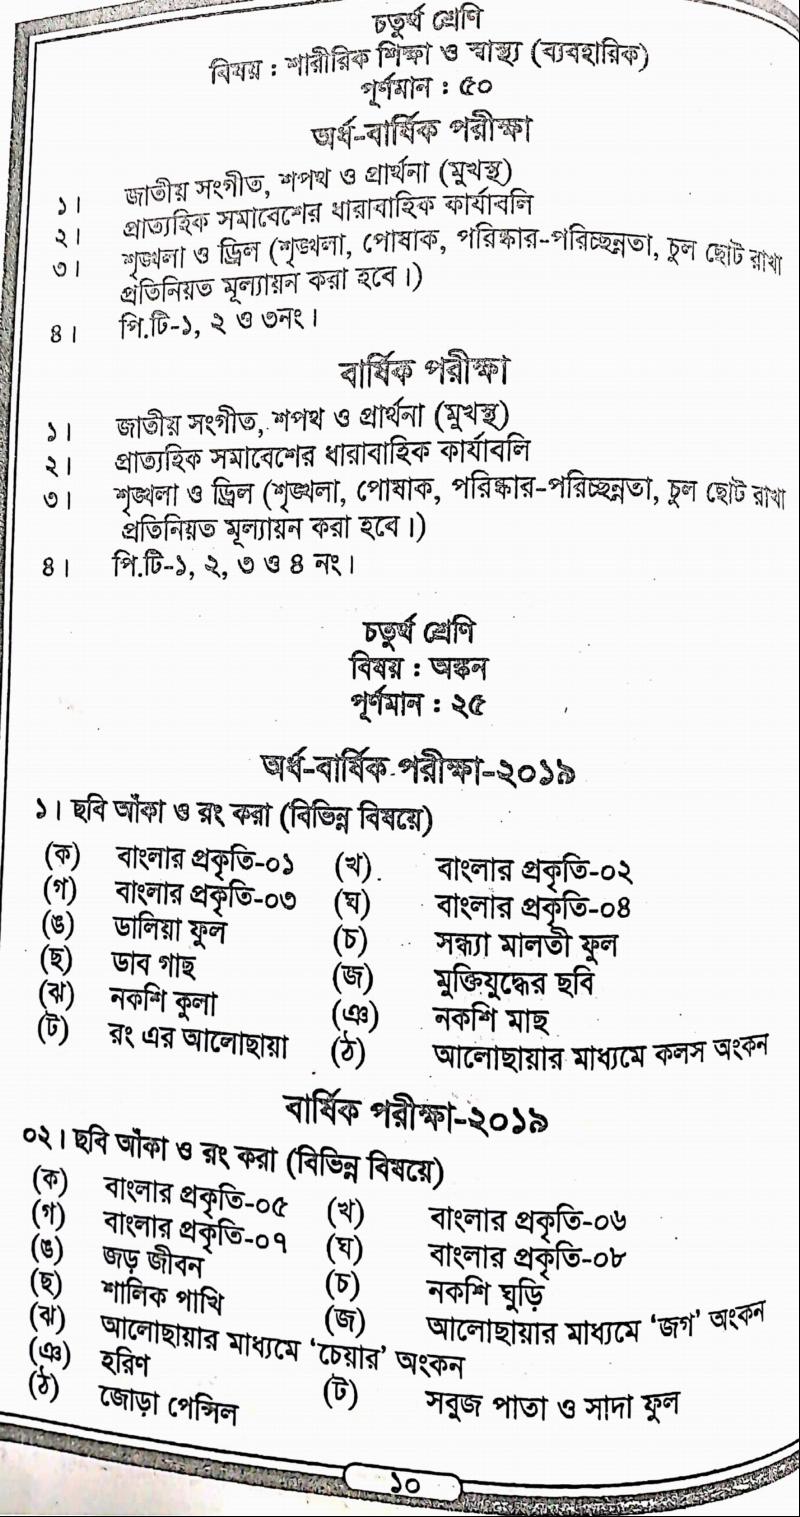 চতুর্থ শ্রেণি
বিষয় : শারীরিক শিক্ষা ও স্বাস্থ্য (ব্যবহারিক)
পূর্ণমান : ৫০
অর্ধ-বার্ষিক পরীক্ষা
১। জাতীয় সংগীত, শপথ ও প্রার্থনা (মুখস্থ)
২। প্রাত্যহিক সমাবেশের ধারাবাহিক কার্যাবলি
৩। শৃঙ্খলা ও ড্রিল (শৃঙ্খলা, পোষাক, পরিষ্কার-পরিচ্ছন্নতা, চুল ছোট রাখা
প্রতিনিয়ত মূল্যায়ন করা হবে।)
৪। পি.টি-১, ২ ও ৩নং।
বার্ষিক পরীক্ষা
১। জাতীয় সংগীত, শপথ ও প্রার্থনা (মুখস্থ)
২। প্রাত্যহিক সমাবেশের ধারাবাহিক কার্যাবলি
৩। শৃঙ্খলা ও ড্রিল (শৃঙ্খলা, পোষাক, পরিষ্কার-পরিচ্ছন্নতা, চুল ছোট রাখা
প্রতিনিয়ত মূল্যায়ন করা হবে।)
৪। পি.টি-১, ২, ৩ ও ৪ নং।
চতুর্থ শ্রেণি
বিষয় : অঙ্কন
পূর্ণমান : ২৫
অর্ধ-বার্ষিক পরীক্ষা-২০১৯
১। ছবি আঁকা ও রং করা (বিভিন্ন বিষয়ে)
(ক) বাংলার প্রকৃতি-০১ (খ) বাংলার প্রকৃতি-০২
(গ) বাংলার প্রকৃতি-০৩ (ঘ) বাংলার প্রকৃতি-০৪
(ঙ) ডালিয়া ফুল (চ) সন্ধ্যা মালতী ফুল
(ছ) ডাব গাছ (জ) মুক্তিযুদ্ধের ছবি
(ঝ) নকশি কুলা (ঞ) নকশি মাছ
(ট) রং এর আলোছায়া (ঠ) আলোছায়ার মাধ্যমে কলস অংকন
বার্ষিক পরীক্ষা-২০১৯
০২। ছবি আঁকা ও রং করা (বিভিন্ন বিষয়ে)
(ক) বাংলার প্রকৃতি-০৫ (খ) বাংলার প্রকৃতি-০৬
(গ) বাংলার প্রকৃতি-০৭ (ঘ) বাংলার প্রকৃতি-০৮
(ঙ) জড় জীবন (চ) নকশি ঘুড়ি
(ছ) শালিক পাখি (জ) আলোছায়ার মাধ্যমে ‘জগ’ অংকন
(ঝ) আলোছায়ার মাধ্যমে ‘চেয়ার’ অংকন
(ঞ) হরিণ (ট) সবুজ পাতা ও সাদা ফুল
(ঠ) জোড়া পেন্সিল
১০